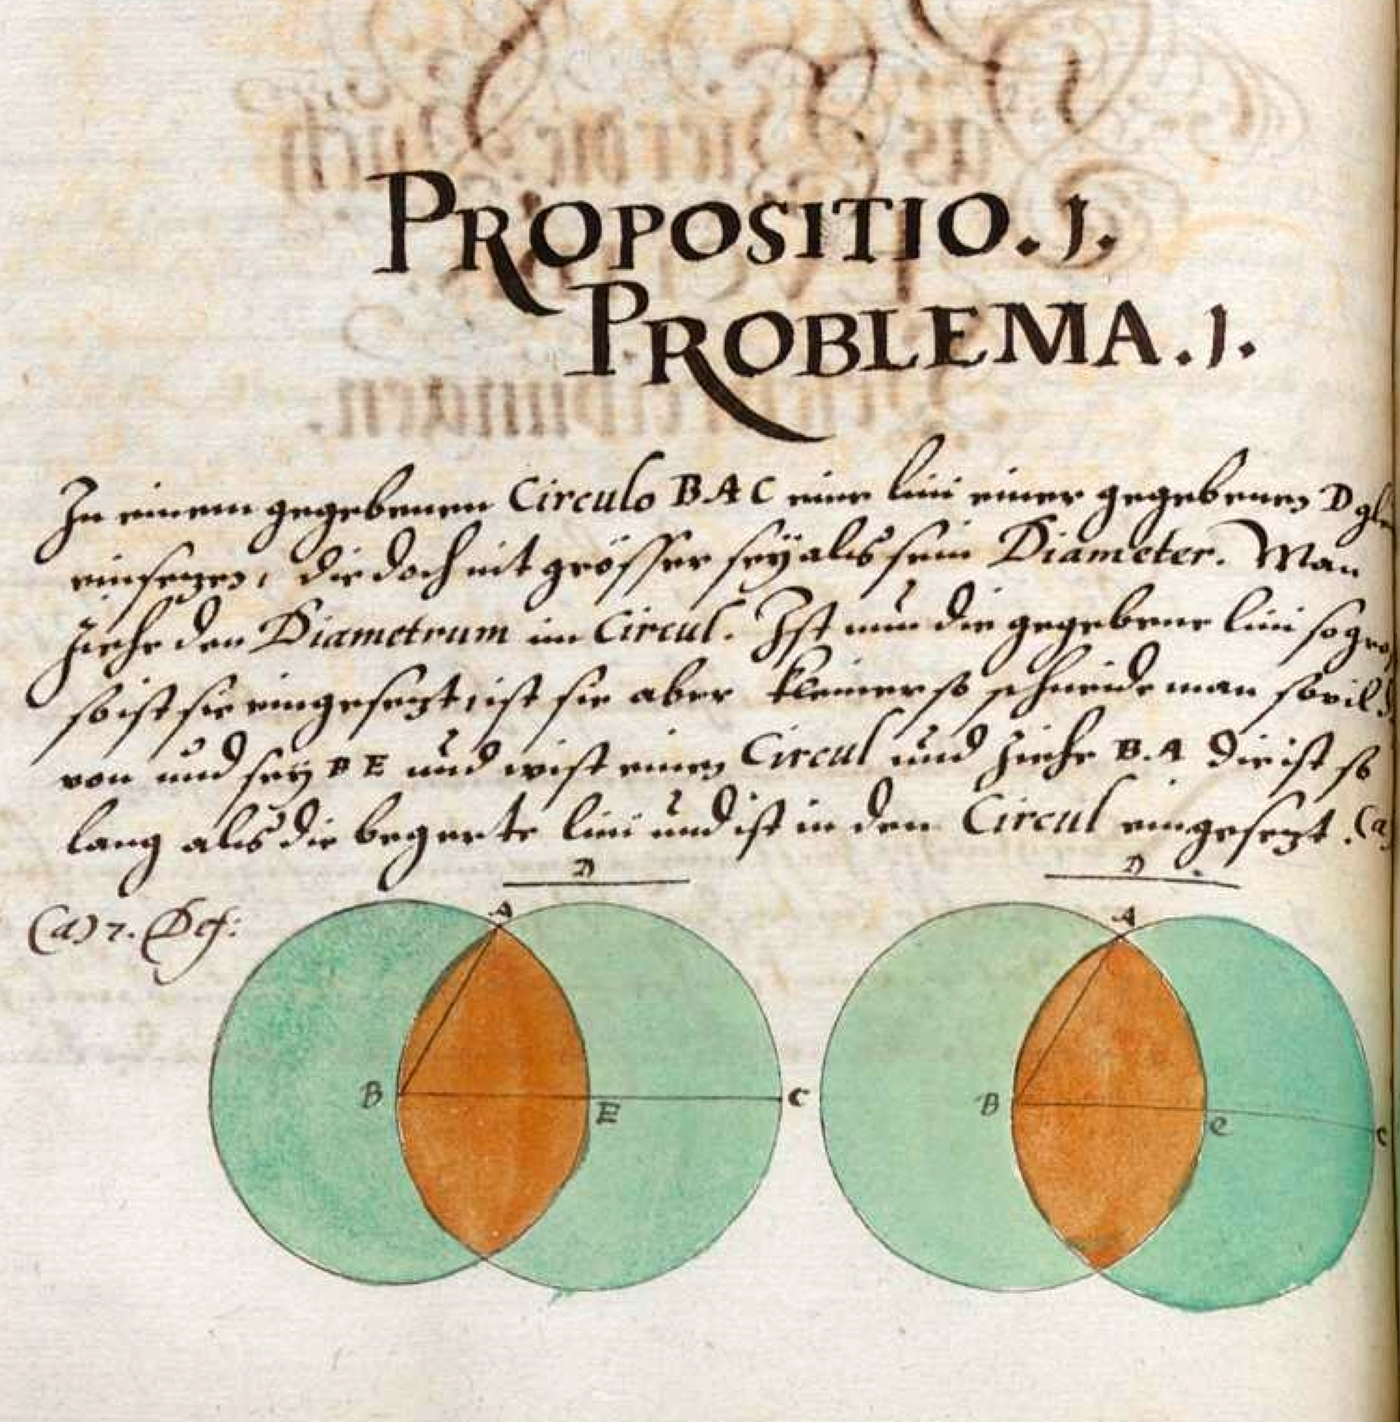 PROPOSITIO. j.
PROBLEMA. j.
In einem gegebenen Circulo BAC eine lini einer gegebenen D
einsezen, die doch nit grösser seÿ als sein Diameter. Man
ziehe den Diametrum im Circul. Ist nun die gegebene lini so
so ist sie eingesezt, ist sie aber kleiner so schneide man sovil
von und seÿ BE und reist einen Circul und ziehe B.A die ist so
lang als die begerte lini und ist in den Circul eingesezt. (a)
D
D
(a) 7. Def:
A
A
B
E
C
B
e
C